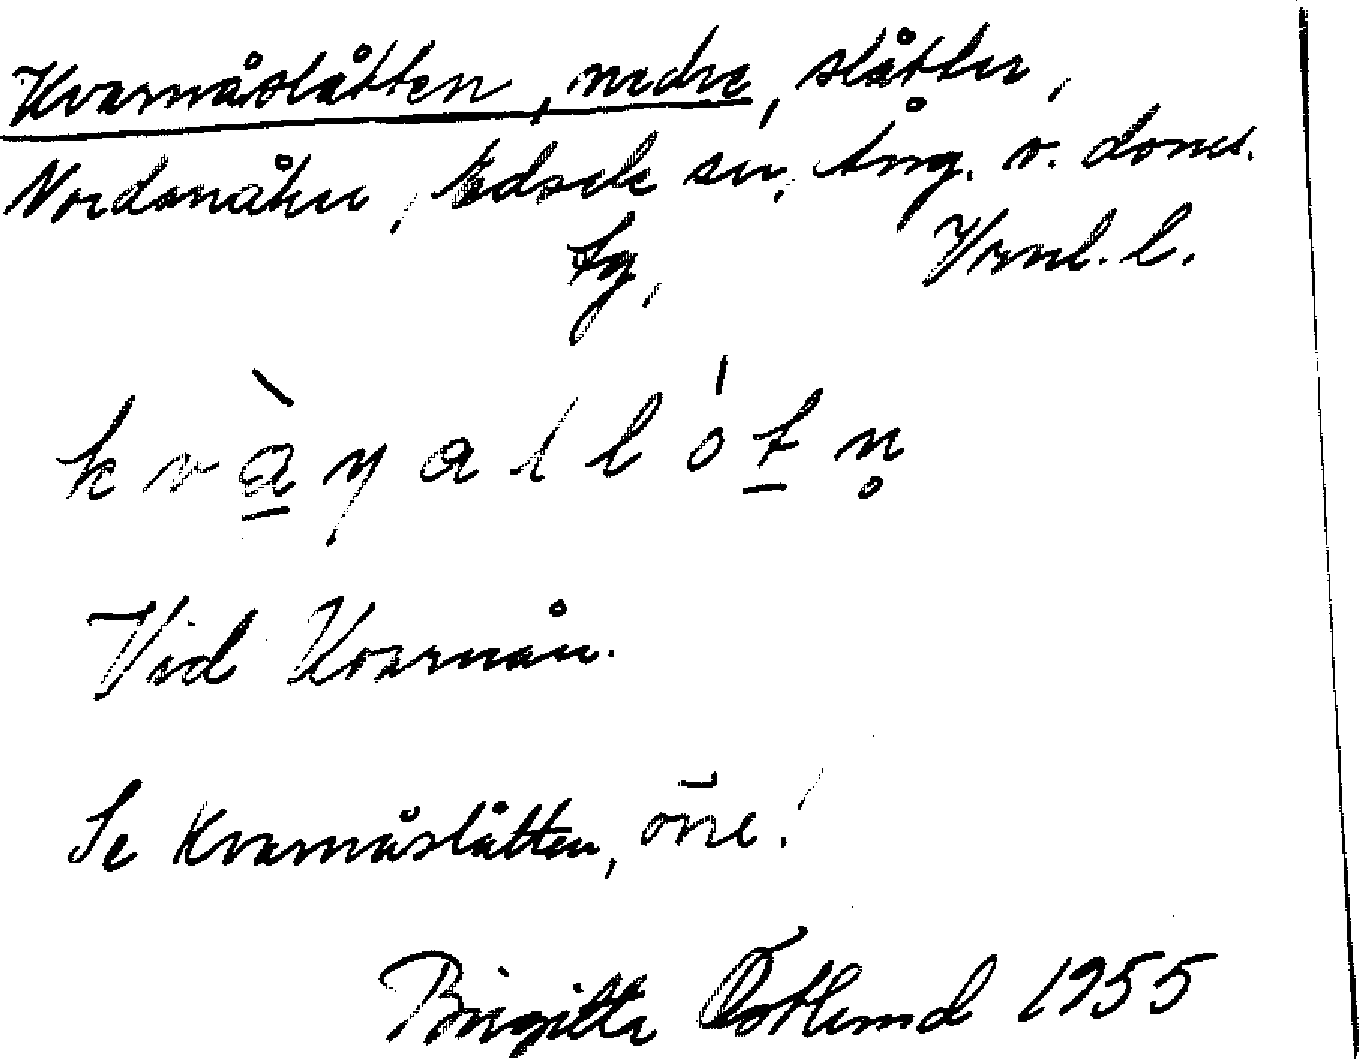 Kvarnåslåtten, nedre, slåtter,
Nordanåker, Edsele sn, Ång. v. doms.
tg, Vrml. l.
k v à̲ ŋ a l l ó t̲ n̥
Vid Kvarnån.
Se Kvarnåslåtten, övre!
Birgitta 1955